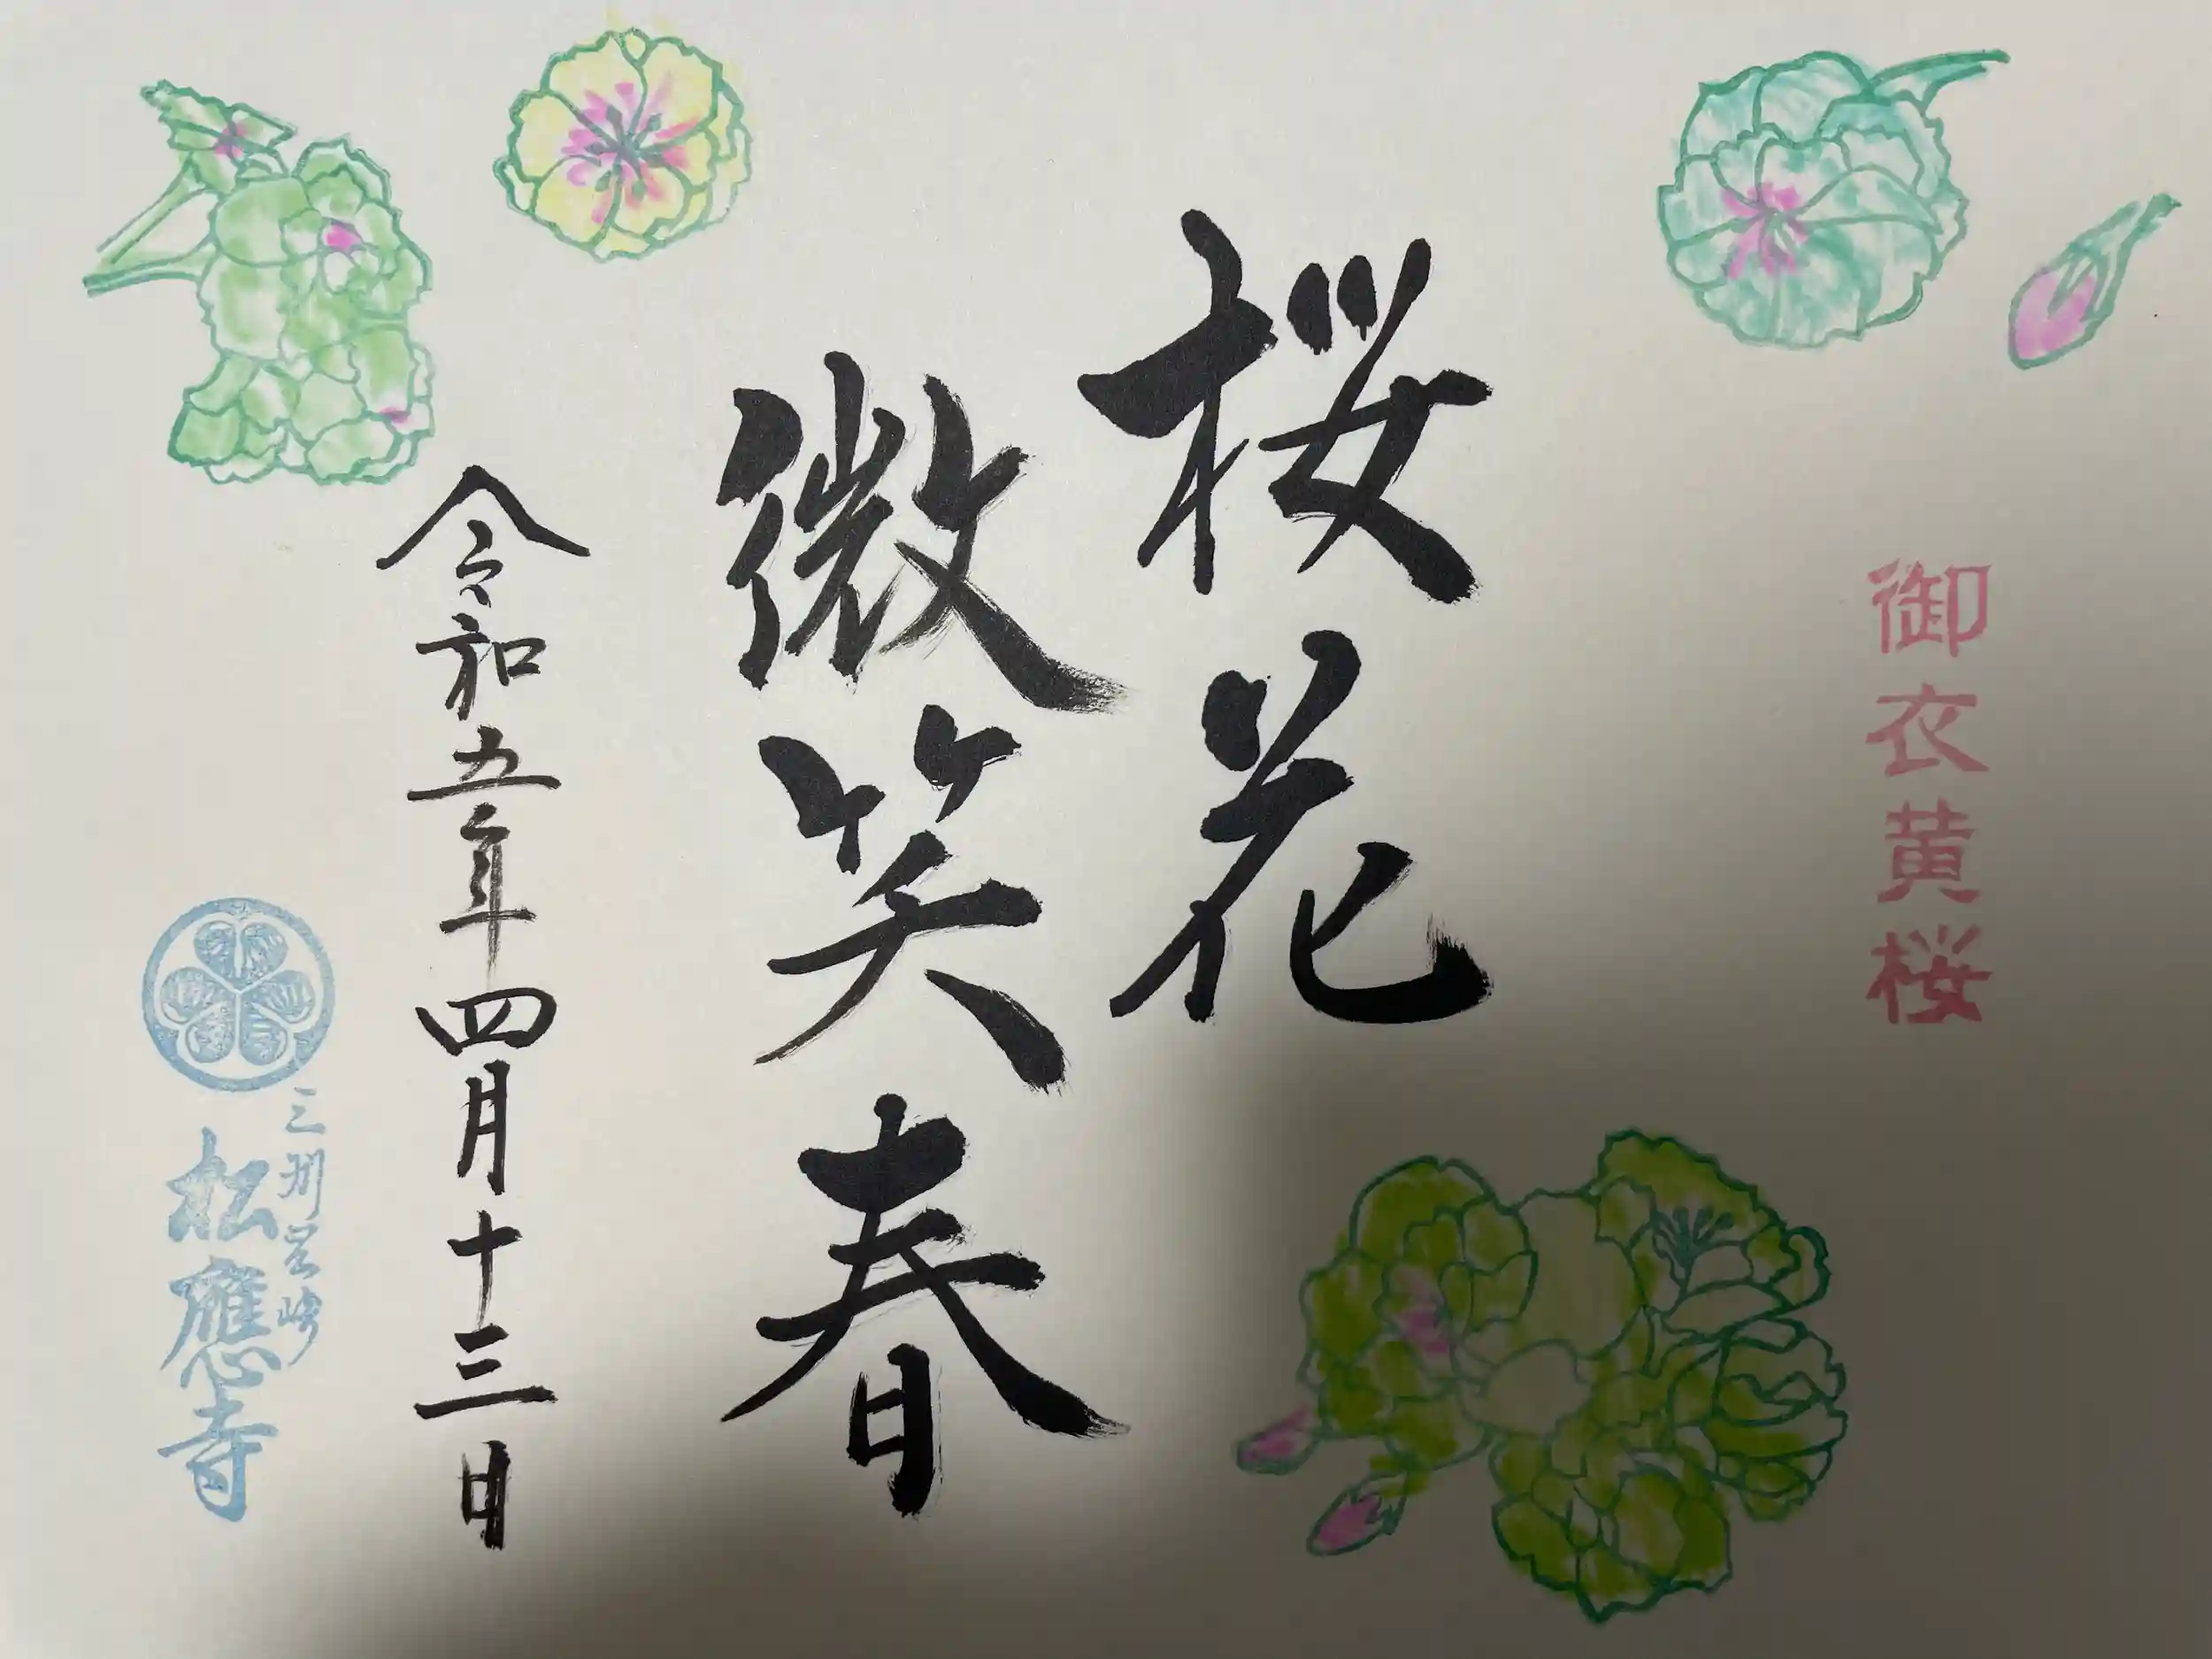 御衣黄桜
桜花
微笑春
令和五年四月十三日
三州岩崎
松應寺